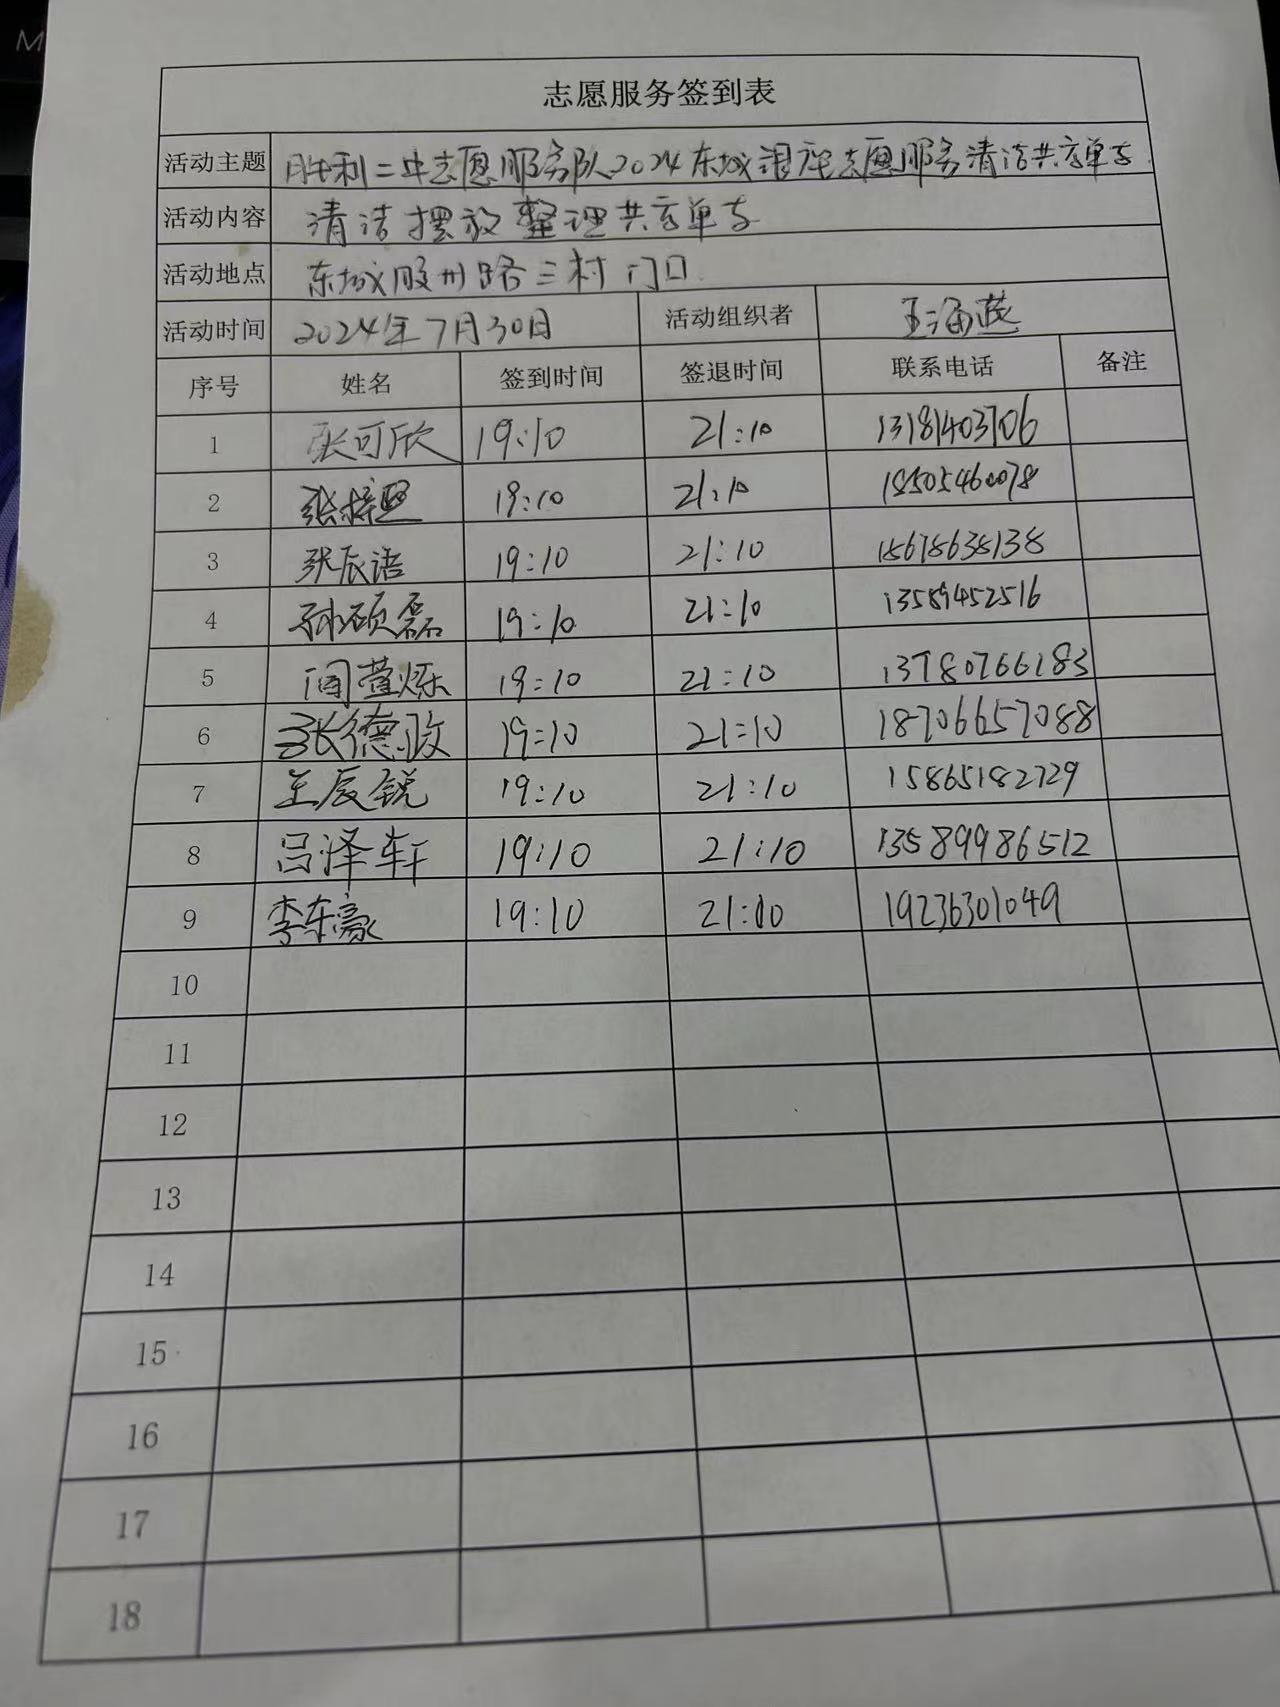 志愿服务签到表
活动主题 胜利二中志愿服务队2024东城银座志愿服务清洁共享单车
活动内容 清洁摆放整理共享单车
活动地点 东城胶州路三村门口
活动时间 2024年7月30日 活动组织者 王海燕
序号 姓名 签到时间 签退时间 联系电话 备注
1 张可欣 19:10 21:10 13181403706
2 19:10 21:10 18505460078
3 张辰语 19:10 21:10 18678638138
4 孙硕磊 19:10 21:10 13589452516
5 闫萱烁 19:10 21:10 13780766183
6 张德政 19:10 21:10 18706657088
7 王辰锐 19:10 21:10 15865182729
8 吕泽轩 19:10 21:10 13589986512
9 李东豪 19:10 21:10 19236301049
10
11
12
13
14
15
16
17
18